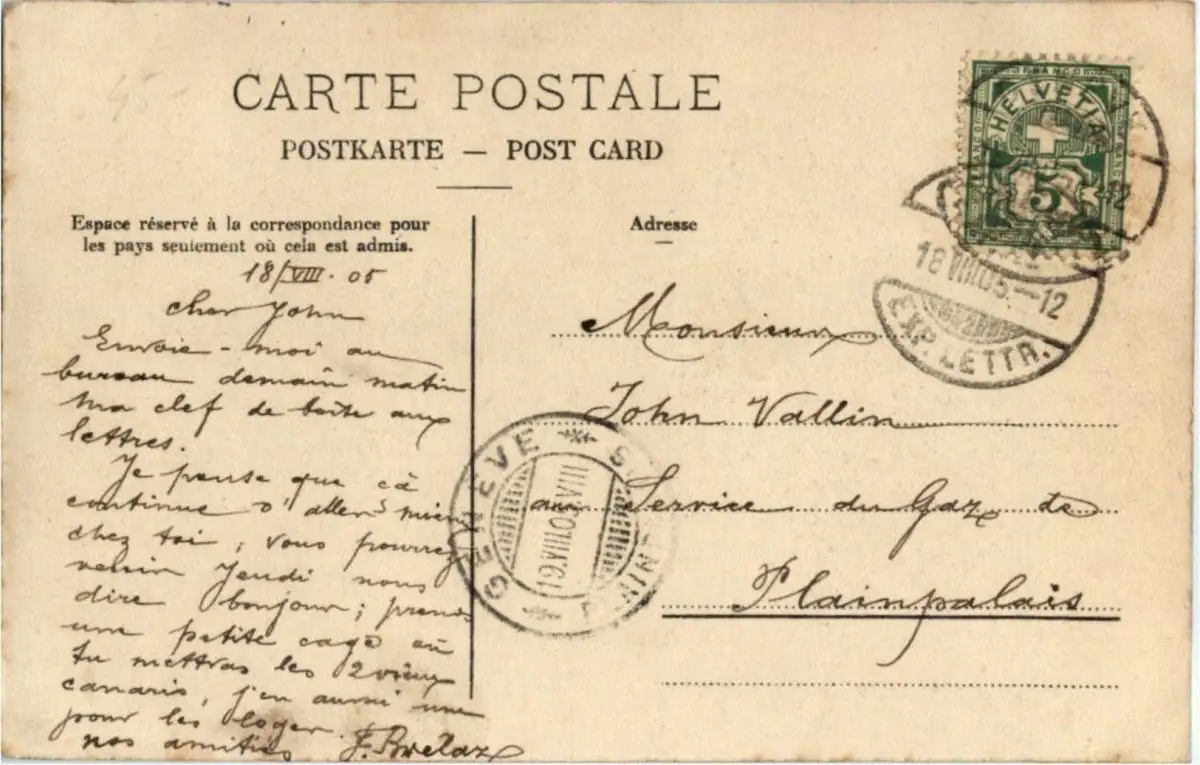 CARTE POSTALE
POSTKARTE — POST CARD
Espace réservé à la correspondance pour
les pays seulement où cela est admis.
Adresse
18/VIII. 05
cher John
Envoie-moi au
bureau demain matin
ma clef de boîte aux
lettres.
Je pense que cà
continue d'aller mieux
chez toi, vous pourrez
venir Jeudi nous
dire bonjour; prends
une petite cage où
tu mettras les 2 vieux
canaris, j'en aurai une
pour les loger.
nos amitiés
Monsieur
John Vallin
au Service du Gaz de
Plainpalais
HELVETIA
FRANCO
5
18 VIII 05.—12
EXP. LETTR.
GENÈVE
19.VIII.05.VIII
PLAINP